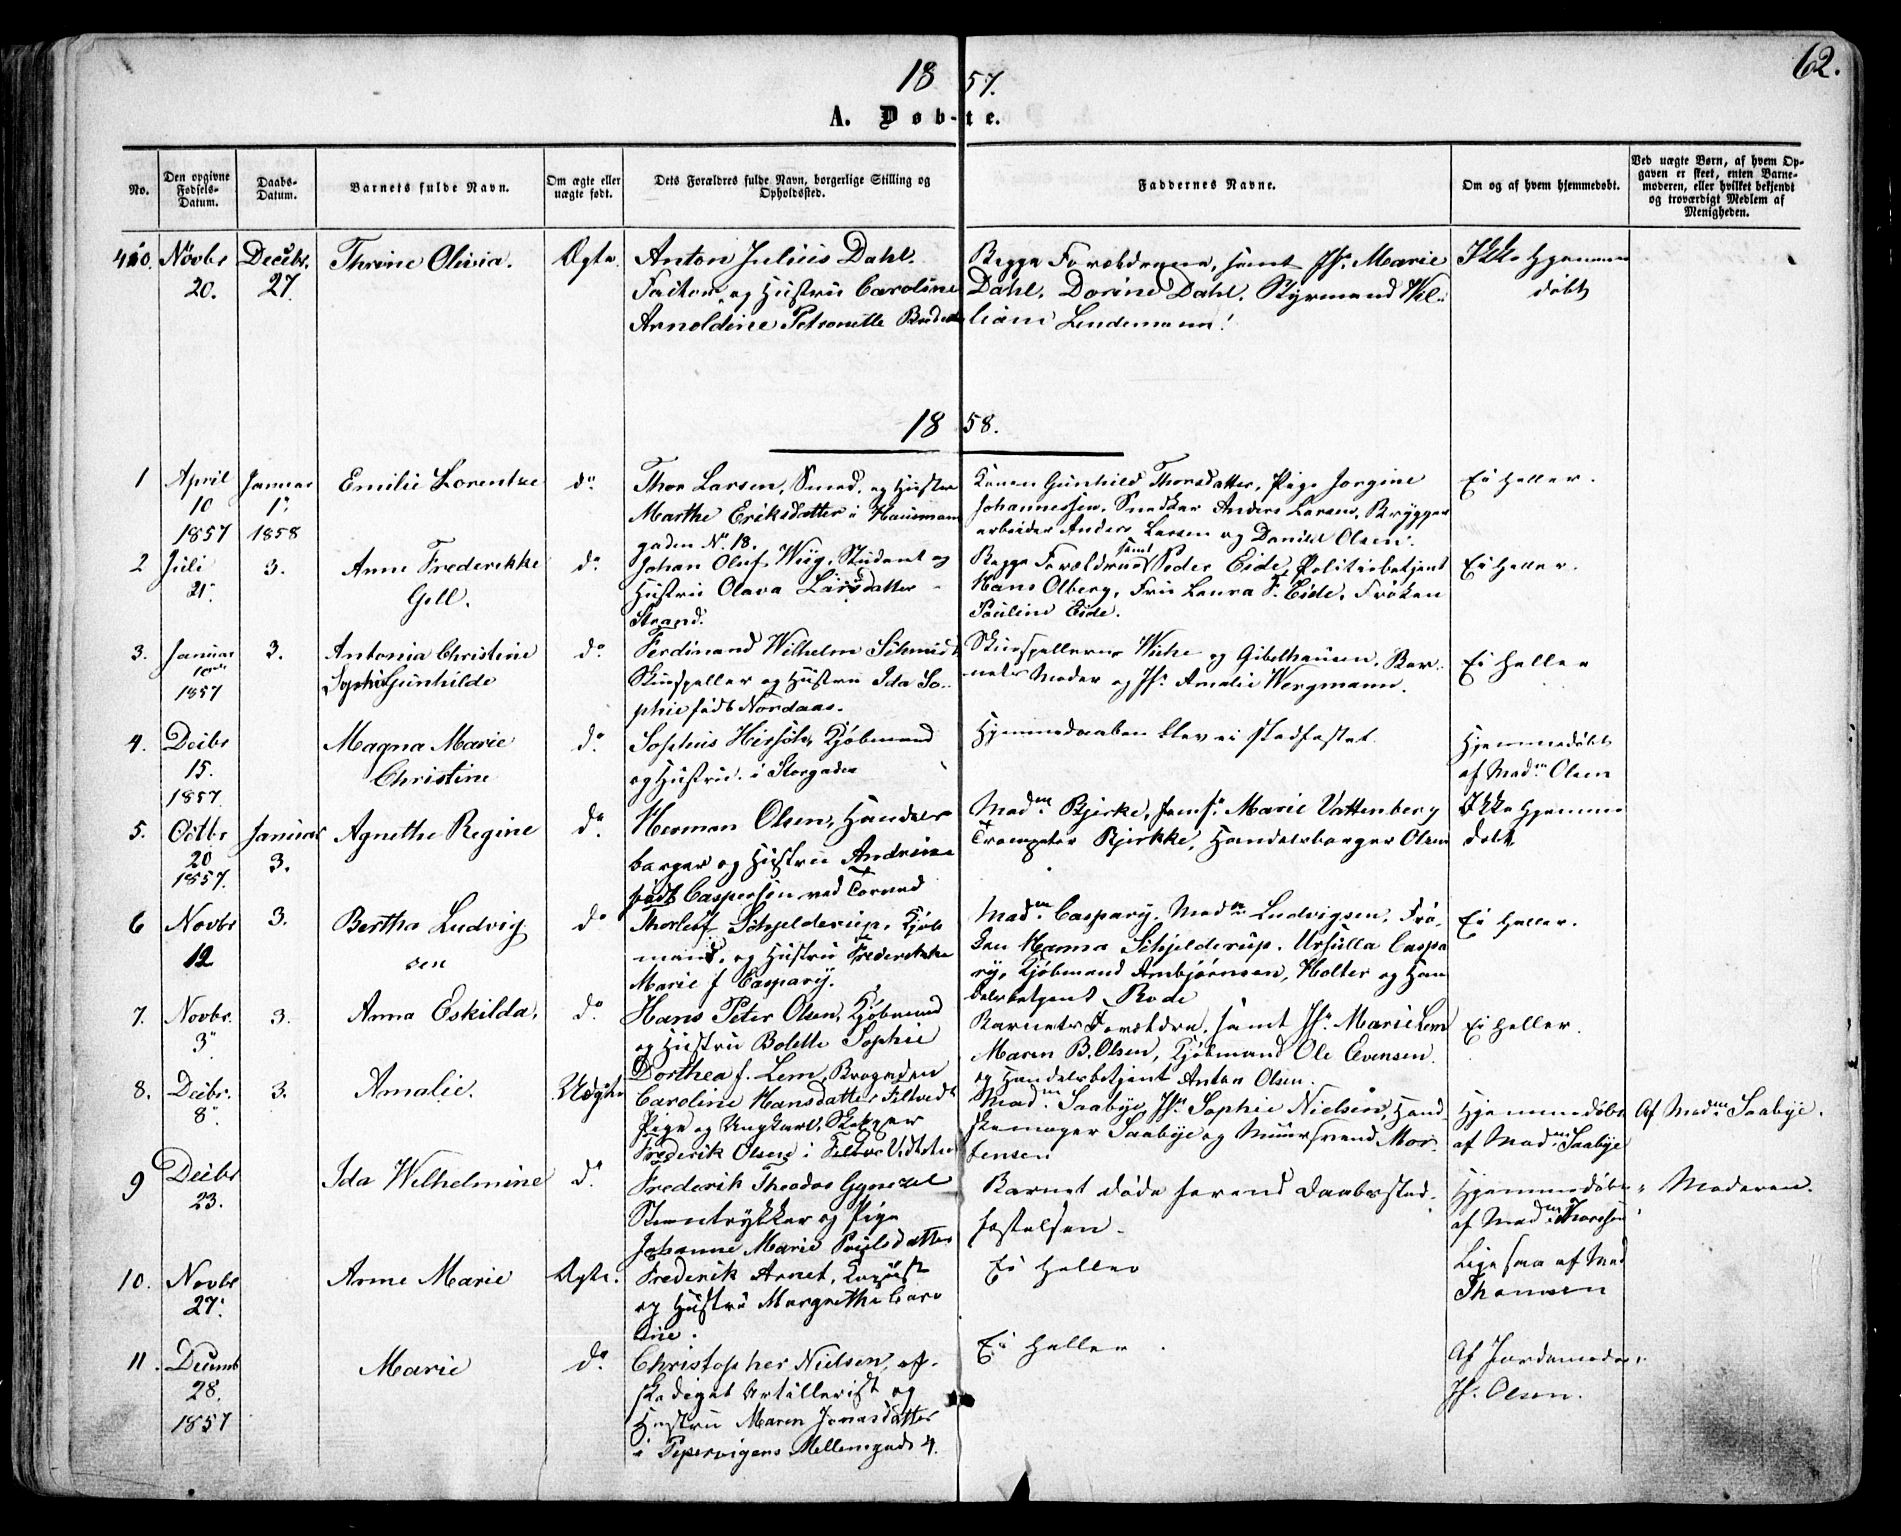 62.
18 57.
A. Døb-te.
No.
Den opgivne Fødsels-Datum.
Daabs-Datum.
Barnets fulde Navn.
Om ægte eller uægte født.
Dets Forældres fulde Navn, borgerlige Stilling og Opholdssted.
Faddernes Navne.
Om og af hvem hjemmedøbt.
Ved uægte Børn, af hvem Opgaven er skeet, enten Barnemoderen, eller hvilket bekjendt og troværdigt Medlem af Menigheden.
Novbr 20.
Decebr. 27.
Thrine Olivia.
Ægte
Anton Julius Dahl.
og Hustru Caroline
Arnoldine Petronelle
Begge Forældrene, samt Jfr. Marie
Dahl, Dorine Dahl, Styrmand Wil-
liam Lindemann.
Ikke hjemme
døbt
18 58.
1
April 10 1857
Januar 1. 1858
Emilie Lorentze
do.
Thor Larsen, Smed, og Hustru
Marthe Eriksdatter i Hausmann
gaden No. 18.
Konen Gunhild Thorsdatter, Pige Jorgine
Johannessen, Snedker Anders Larsen, Brygger
arbeider Anders Larsen og Daniel Olsen.
Ei heller.
2
Juli 21.
3.
Anne Frederikke
Gell.
do.
Johan Oluf Wiig, Student og
Hustru Olava Larsdatter
Strand.
Begge Forældrene samt Peder Eide, Politiebetjent
Hans Olberg, Fru Laura F. Eide, Frøken
Pauline Eide.
Ei heller.
3.
Januar 10 1857
3.
Antonia Christine
Sophie Gunhilde
do
Ferdinand Wilhelm Schmidt
Skuespiller og Hustru Ida So-
phie født Nordaas.
Skuespillerne Wiehe og Gibelhausen, Bar-
nets Moder og Jfr. Amalie Wergmann.
Ei heller
4.
Decbr 15. 1857
Magna Marie
Christine
do.
Sophus Hirsch, Kjøbmand
og Hustru. i Storgaden
Hjemmedaaben blev ei stadfæstet.
Hjemmedøbt
af Madm Olsen
5.
Octbr 20 1857.
Januar 3.
Agnethe Regine
do.
Herman Olsen, Handels
borger og Hustru Andrine
født Caspersen ved Torvet
Madm. Bjerke, Jomfr. Marie Vattenberg
Trompeter Bjerkke, Handelsborger Olsen
Ikke hjemme
døbt
6
Novbr 12
3.
Bertha Ludvig
sen
do
Thorleif Schjelderup, Kjøb
mand, og Hustru Frederikke
Marie f Caspary.
Madm. Caspary, Madm Ludvigsen, Frø-
ken Hanna Schjelderup, Ursulla Caspa
ry, Kjøbmand Ambjørnsen, Holter og Han
delsbetjent Rode
Ei heller.
7.
Novbr. 3.
3.
Anna Eskilda.
do.
Hans Peter Olsen, Kjøbmand
og Hustru Bolette Sophie
Dorthea f. Lem, Brogaden
Barnets Forældre, samt Jfr. Marie Lem
Maren B. Olsen, Kjøbmand Ole Evensen
og Handelsbetjent Anton Olsen.
Ei heller.
8.
Decbr. 8.
3.
Amalie.
Uægte
Caroline Hansdatter Filtvedt
Pige og Ungkarl,
Frederik Olsen i
Madm. Saabye, Jfr. Sophie Nielsen, Hand
skemager Saabye og Muursvend Mor-
tensen
Hjemmedøbt
af Madm Saabye
Af Madm. Saabye.
9
Decbr 23.
Ida Wilhelmine
do.
Frederik Theodor
Steentrykker og Pige
Johanne Marie Poulsdatter
Barnet døde førend Daabsstad-
fæstelsen.
Hjemmedøbt
af Madm Thoresen
" Moderen.
10.
Novbr 27.
Anne Marie
Ægte.
Frederik Arnet,
og Hustru Margrethe Caro
line.
Ei heller
Ligesaa af Mad
Thomsen
11.
Decemb 28. 1857
Marie
do
Christopher Nielsen, af-
skediget Artillerist og
Hustru Maren Jonasdatter
i Pipervigens Mellemgade 4.
Ei heller.
Af Jordemoder
Jfr. Olsen.